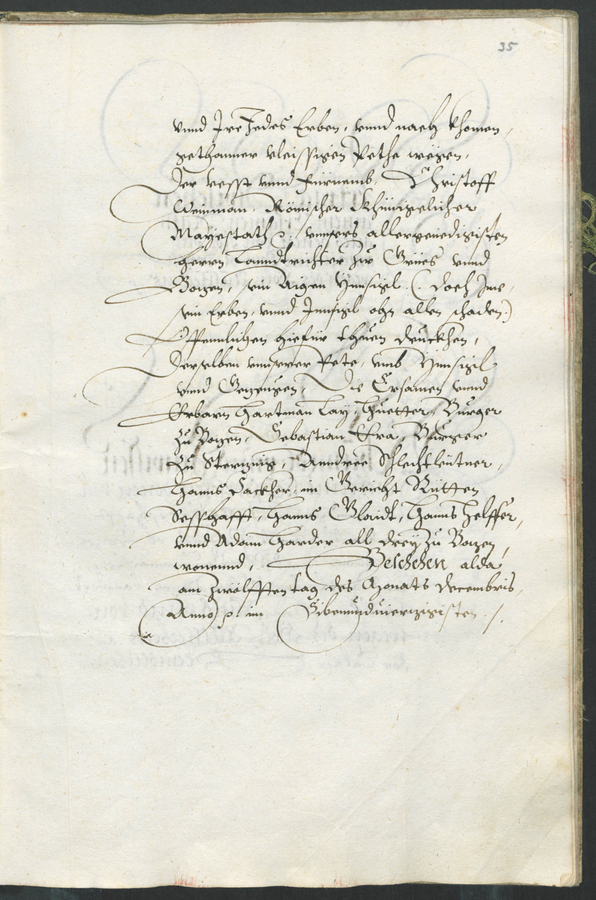 35
vnnd Ire Jedes Erben, vnnd nach khomen,
gethanner vleissigen Pethe wegen,
Der vesst vnnd fürnemb, Christoff
Weinman Römischer Khünigclicher
Mayestath p. vnnsers allergenedigisten
herrn Lanndtrichter zu Gries vnnd
Bozen, sein Aigen Ynnsigl (doch Ime,
sein Erben, vnnd Innsigl ohn allen schaden)
Offennlichen hiefür thuen druckhen,
Derselben vnnserer Pete, vmb Ynnsigl
vnnd Gezeugen, Die Ersamen vnnd
Erbarn Hartman Lay, Huetter, Burger
zu Bozen, Sebastian Burger
zu Sterzing, Anndree Schlechtleutner,
Hanns Säckher, in Gericht Ritten
Sesshafft, Hanns Hanns Helffer,
vnnd Adam Harder all drey zu Bozen,
wonennd, Beschehen alda
am zwölfften tag des Monats Decembris,
Anno p. im Sibenundvierzigisten /.